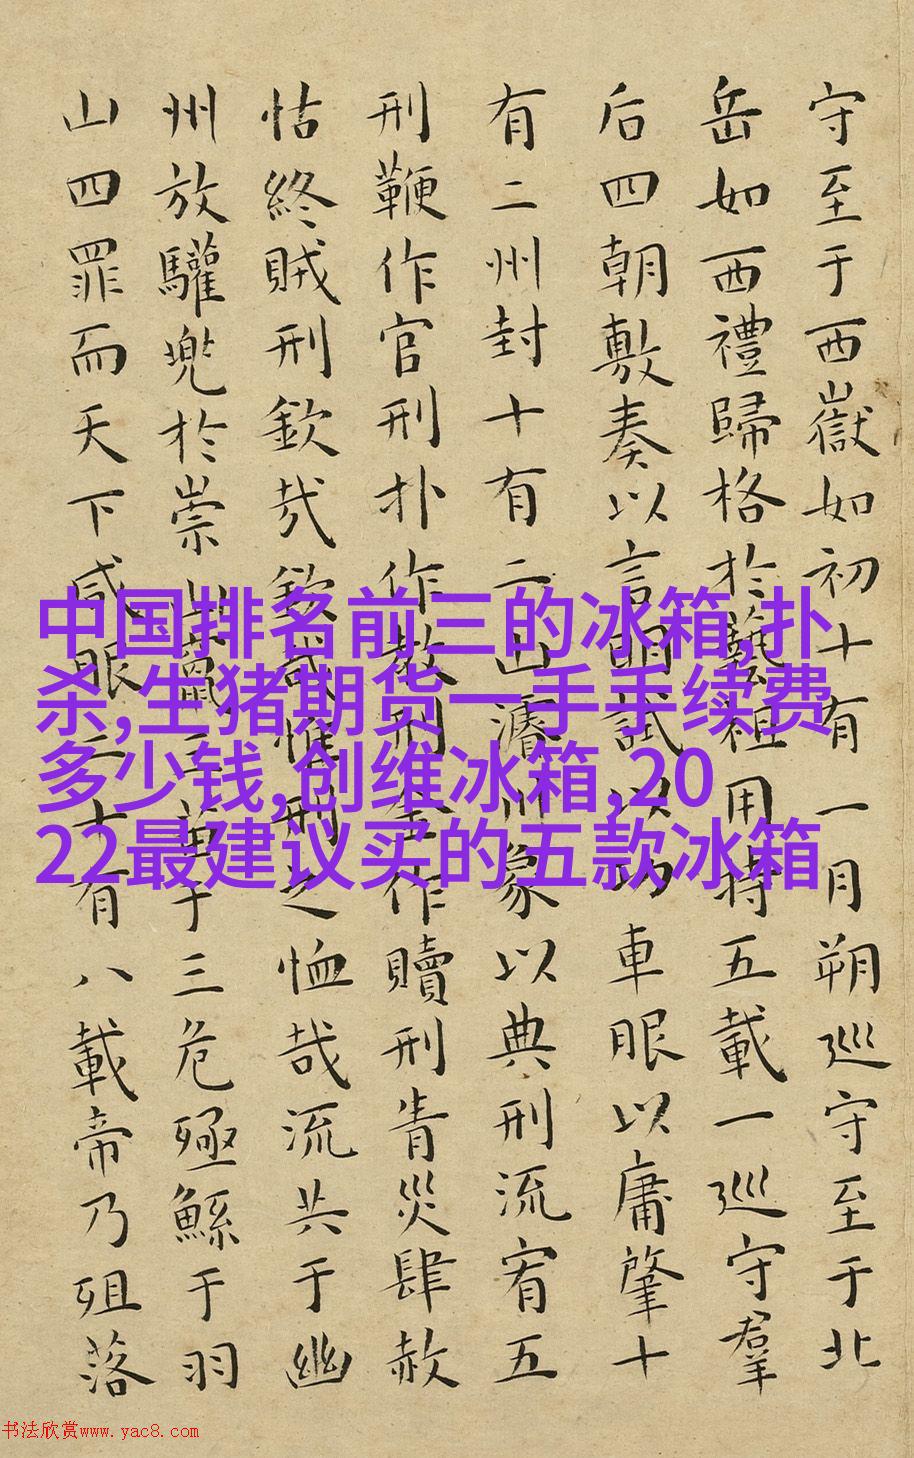 守至于西嶽如初十有一月朔巡守至于北
岳如西禮歸格於藝祖用特五載一巡守羣
后四朝敷奏以言明試以功車服以庸肇十
有二州封十有二山濬川象以典刑流宥五
刑鞭作官刑扑作教刑金作贖刑眚災肆赦
怙終賊刑欽哉欽哉惟刑之恤哉流共于幽
州放驩兜於崇山竄三苗于三危殛鯀于羽
山四罪而天下咸服二十有八載帝乃殂落
中国排名前三的冰箱,扑
杀,生猪期货一手手续费
多少钱,创维冰箱,20
22最建议买的五款冰箱
书法欣赏www.yac8.com